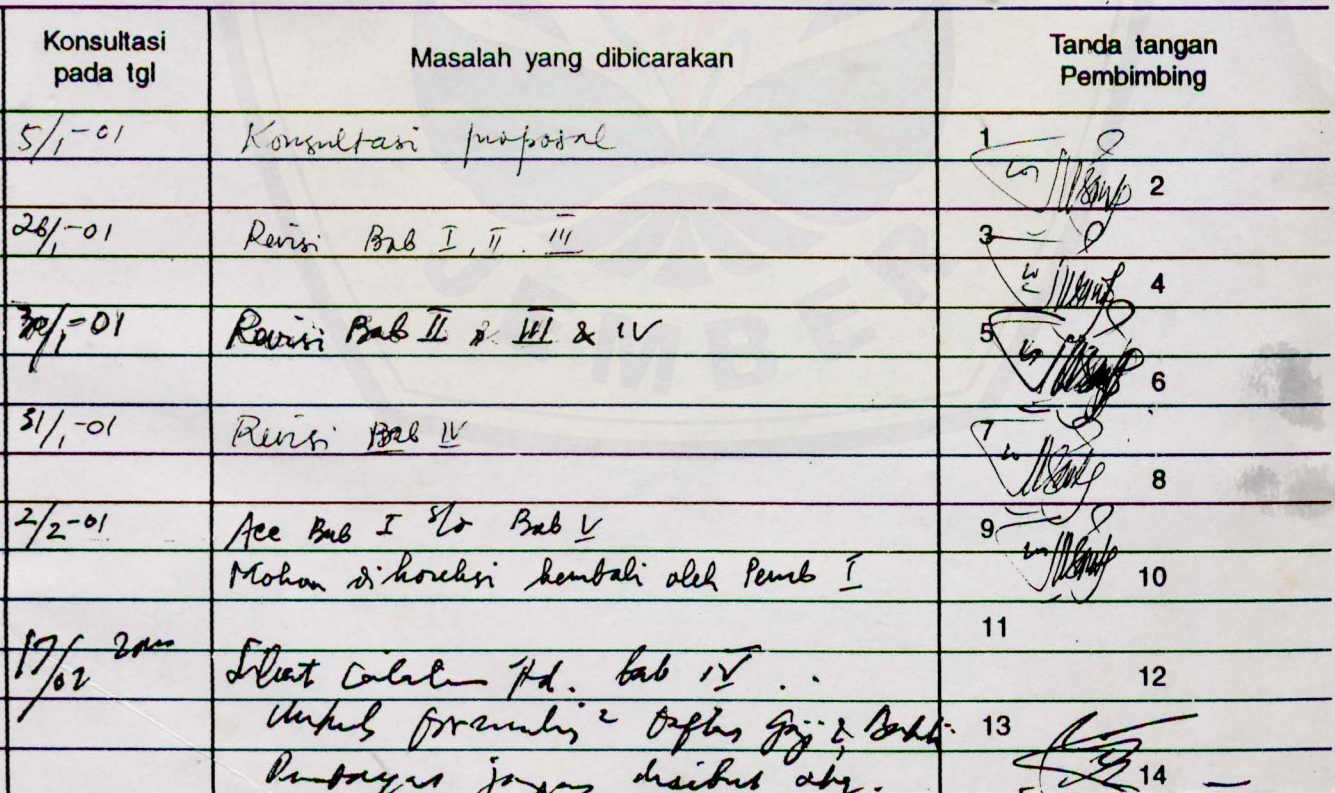 Konsultasi pada tgl
Masalah yang dibicarakan
Tanda tangan Pembimbing
5/1-01 Konsultasi proposal 1
2
26/1-01 Revisi Bab I, II. III 3
4
30/1-01 Revisi Bab II & III & IV 5
6
31/1-01 Revisi Bab IV 7
8
2/2-01 Acc Bab I s/d Bab V 9
Mohon dikoreksi kembali oleh Pemb I 10
11
17/02 bab IV 12
untuk 13
jangan disebut 14
JEMBER